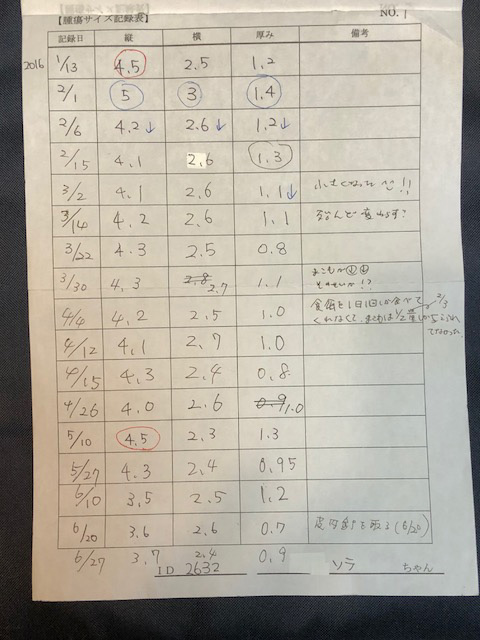 【腫瘍サイズ記録表】 NO. 1
記録日 縦 横 厚み 備考
2016 1/13 4.5 2.5 1.2
2/1 5 3 1.4
2/6 4.2↓ 2.6↓ 1.2↓
2/15 4.1 2.6 1.3
3/2 4.1 2.6 1.1↓ 小さくなってる!!
3/14 4.2 2.6 1.1 殆んど変わらず?
3/22 4.3 2.5 0.8
3/30 4.3 2.8 2.7 1.1
4/4 4.2 2.5 1.0 食餌を1日1回しか食べて
くれなくて、
4/12 4.1 2.7 1.0
4/15 4.3 2.4 0.8
4/26 4.0 2.6 0.9 1.0
5/10 4.5 2.3 1.3
5/27 4.3 2.4 0.95
6/10 3.5 2.5 1.2
6/20 3.6 2.6 0.7 (6/20)
6/27 3.7 2.4 0.9
ID 2632 ソラ ちゃん